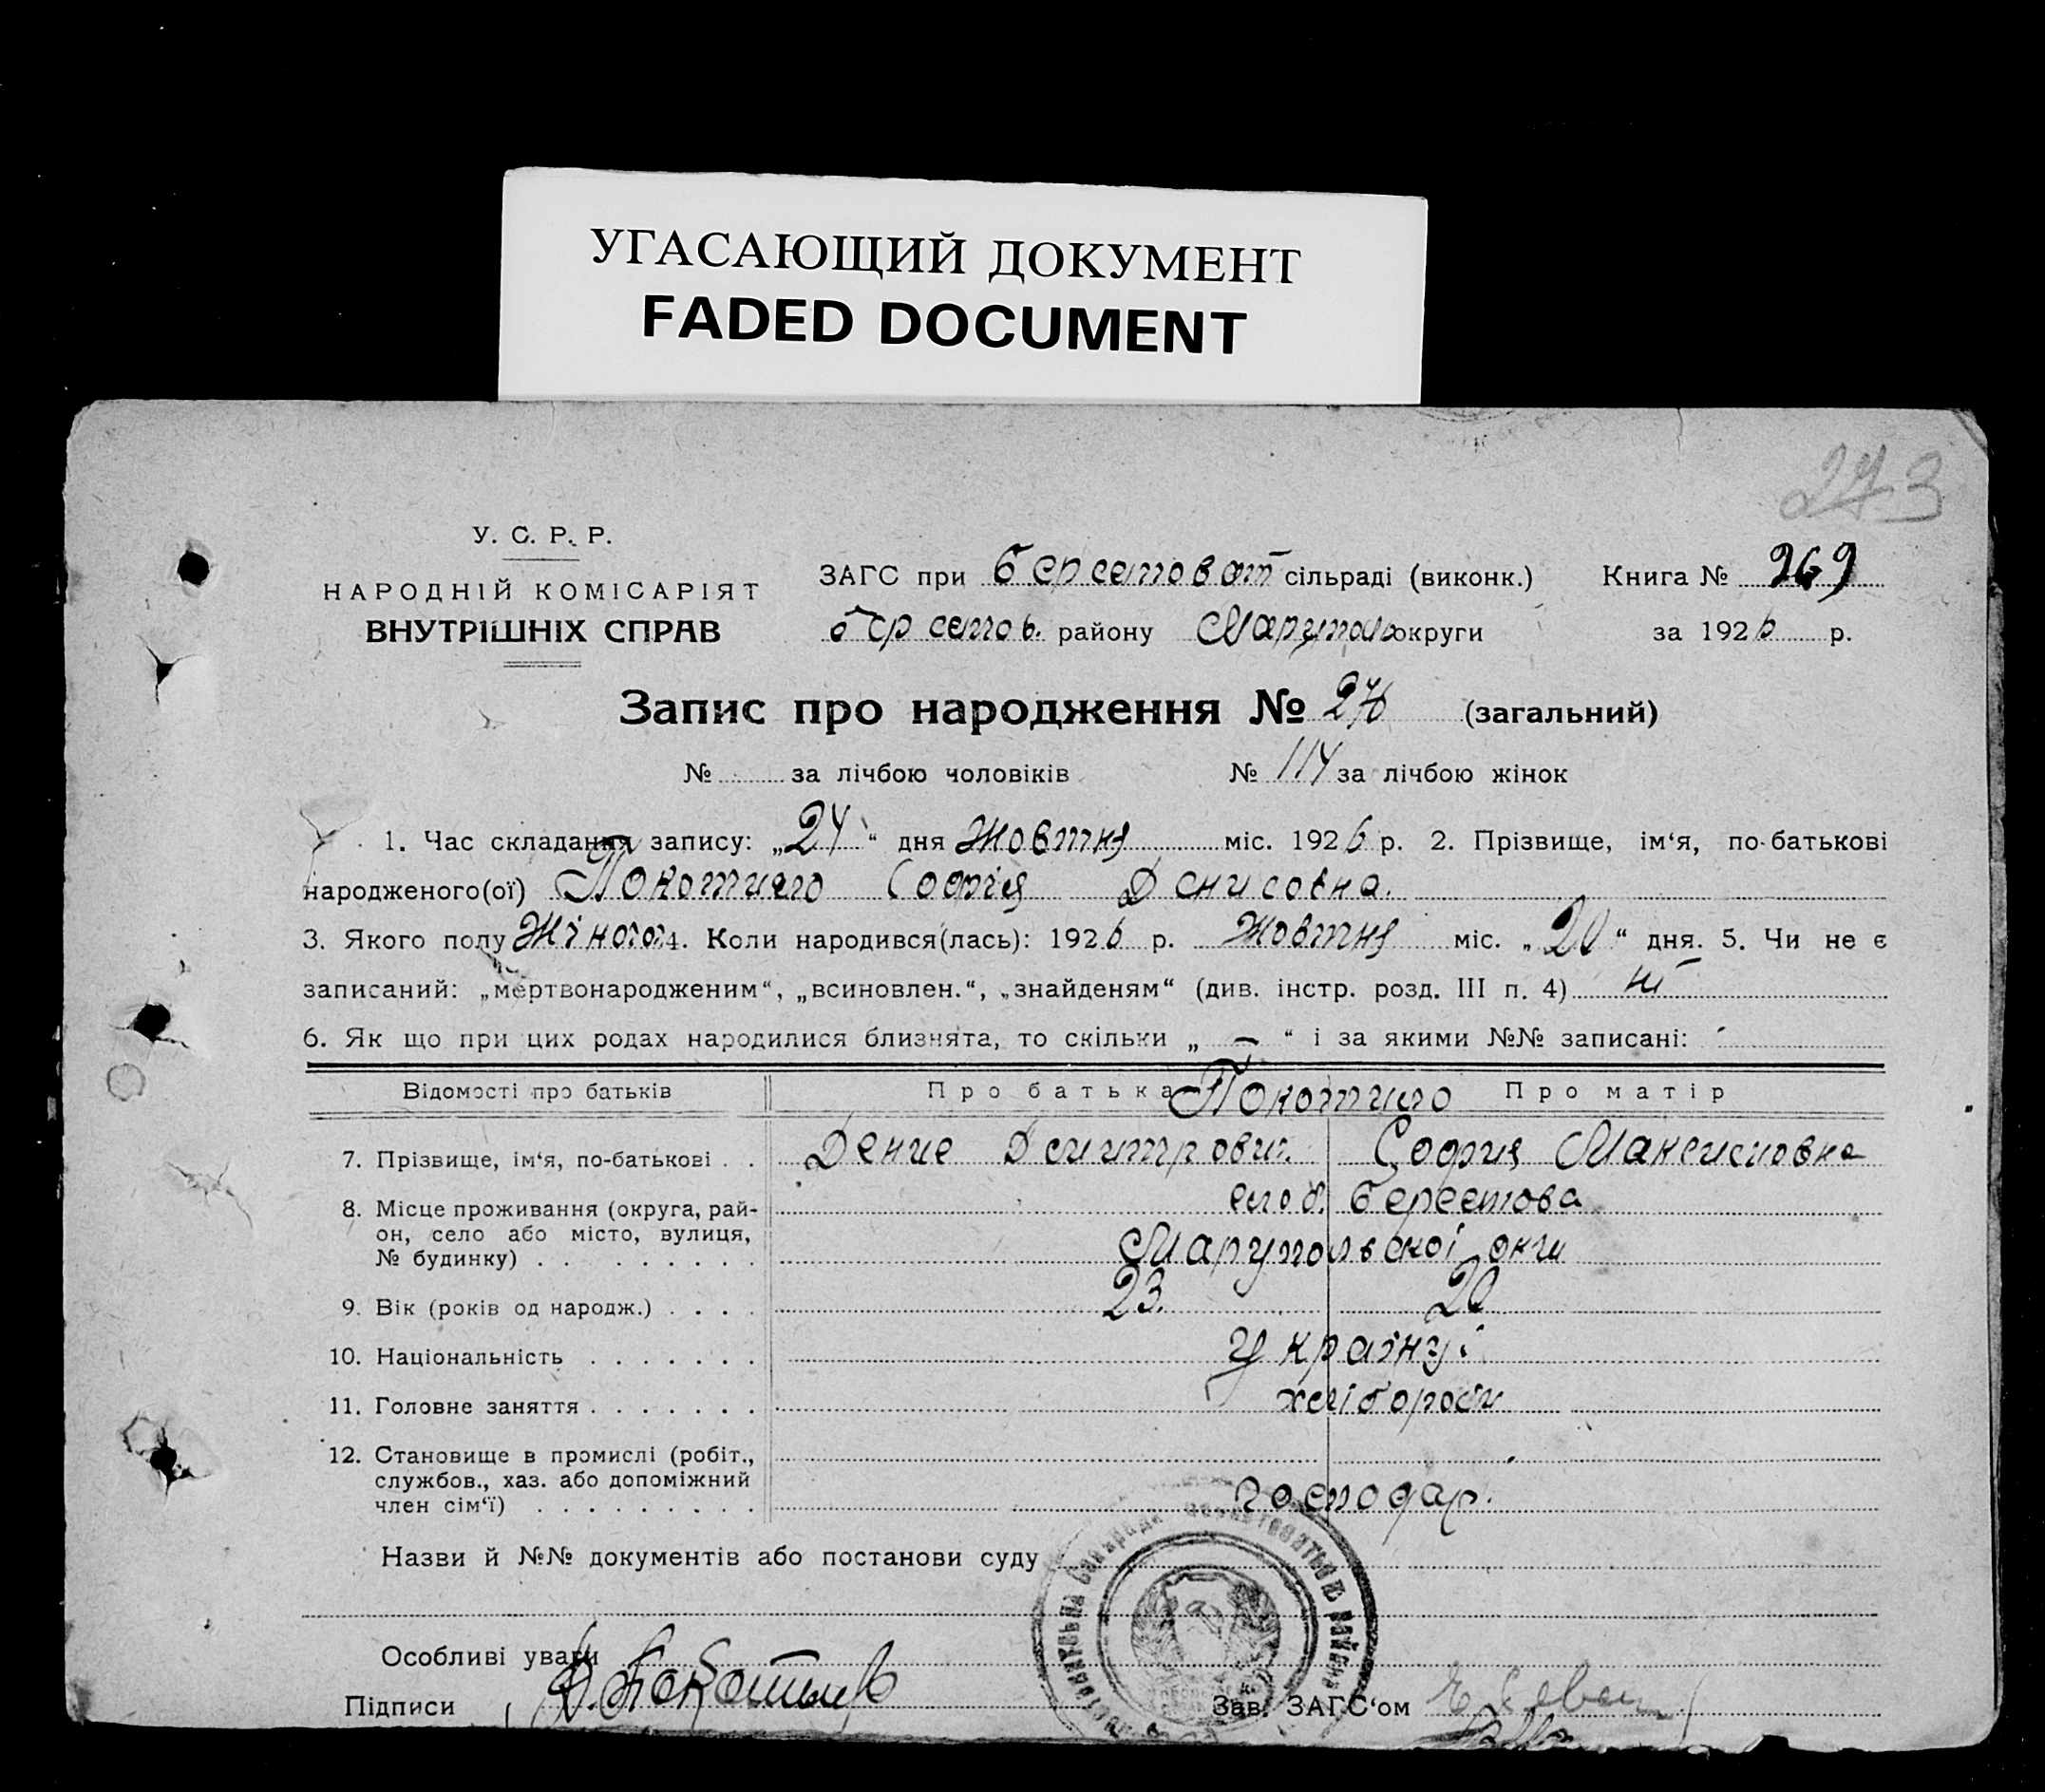 УГАСАЮЩИЙ ДОКУМЕНТ
FADED DOCUMENT
273
У. С. Р. Р.
НАРОДНІЙ КОМІСАРІЯТ
ВНУТРІШНІХ СПРАВ
ЗАГС при Берестоват сільраді (виконк.) Книга № 269
Берестов. району Маруполь округи за 1926 р.
Запис про народження № 276 (загальний)
№ за лічбою чоловіків № 114 за лічбою жінок
1. Час складання запису: „24“ дня Жовтня міс. 1926 р. 2. Прізвище, ім‘я, по-батькові
народженого(ої) Покотило Софія Денисовна.
3. Якого полу Жіного 4. Коли народився(лась): 1926 р. Жовтня міс. „20“ дня. 5. Чи не є
записаний: „мертвонародженим“, „всиновлен.“, „знайденям“ (див. інстр. розд. III п. 4) ні
6. Як що при цих родах народилися близнята, то скільки „ — “ і за якими №№ записані:
Відомості про батьків Про батька Покотило Про матір
7. Прізвище, ім‘я, по-батькові . . Денис Дмитрович. София Максимовна
8. Місце проживання (округа, рай- слоб. Берестова
он, село або місто, вулиця,
№ будинку) . . . . . . . . . Марупольскої окги
9. Вік (років од народж.) . . . . 23. 20
10. Національність . . . . . . . Українці
11. Головне заняття . . . . . . . хлібороби
12. Становище в промислі (робіт.,
службов., хаз. або допоміжний
член сім‘ї) . . . . . . . . . господар.
Назви й №№ документів або постанови суду
Особливі уваги
Підписи Д. Покотило Зав. ЗАГС‘ом